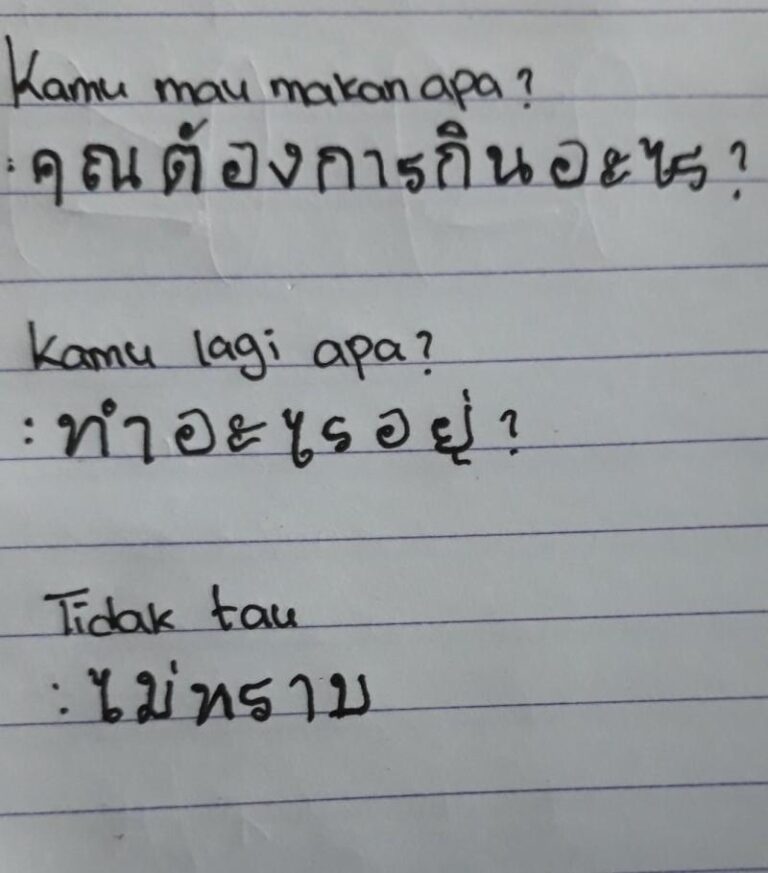 Kamu mau makan apa?
: คุณต้องการกินอะไร?
Kamu lagi apa?
: ทำอะไรอยู่?
Tidak tau
: ไม่ทราบ